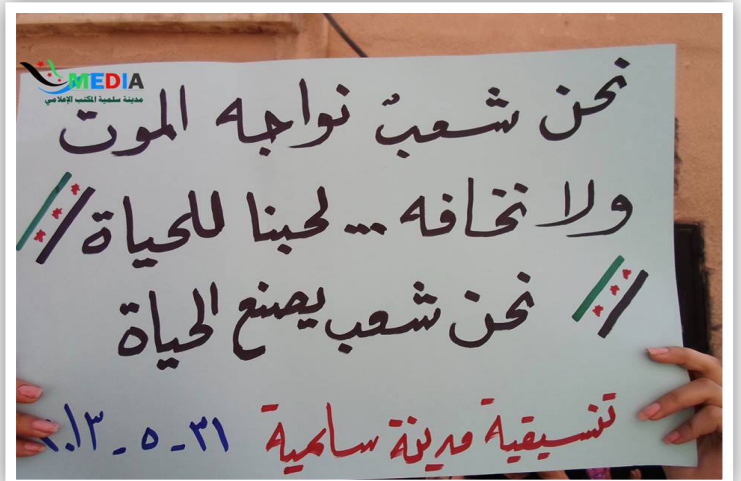 MEDIA
مدينة سلمية المكتب الإعلامي
نحن شعبٌ نواجه الموت
ولا نخافه ... لحبنا للحياة
نحن شعب يصنع الحياة
تنسيقية مدينة سلمية ٣١ - ٥ - ٢٠١٣